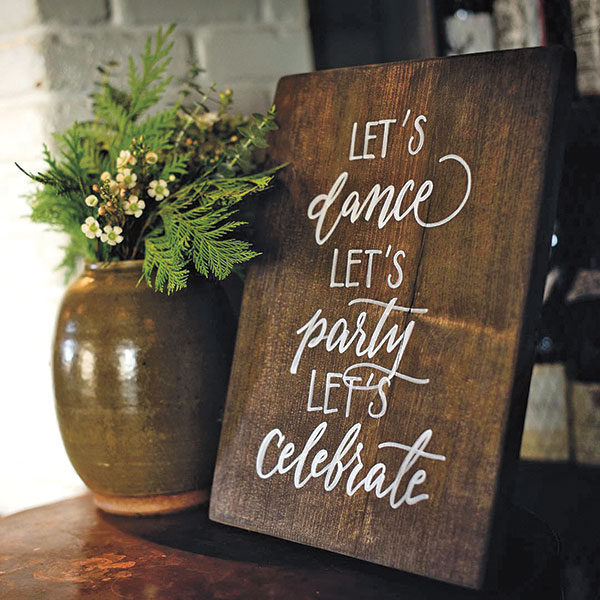 LET'S
dance
LET'S
party
LET'S
celebrate